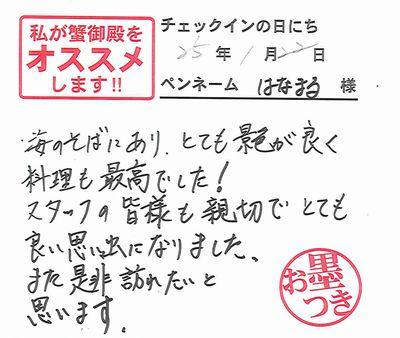 私が蟹御殿を
オススメ
します!!
チェックインの日にち
25年1月22日
ペンネーム はなまる 様
海のそばにあり、とても景色が良く
料理も最高でした!
スタッフの皆様も親切でとても
良い思い出になりました、
また是非訪れたいと
思います.
お墨つき